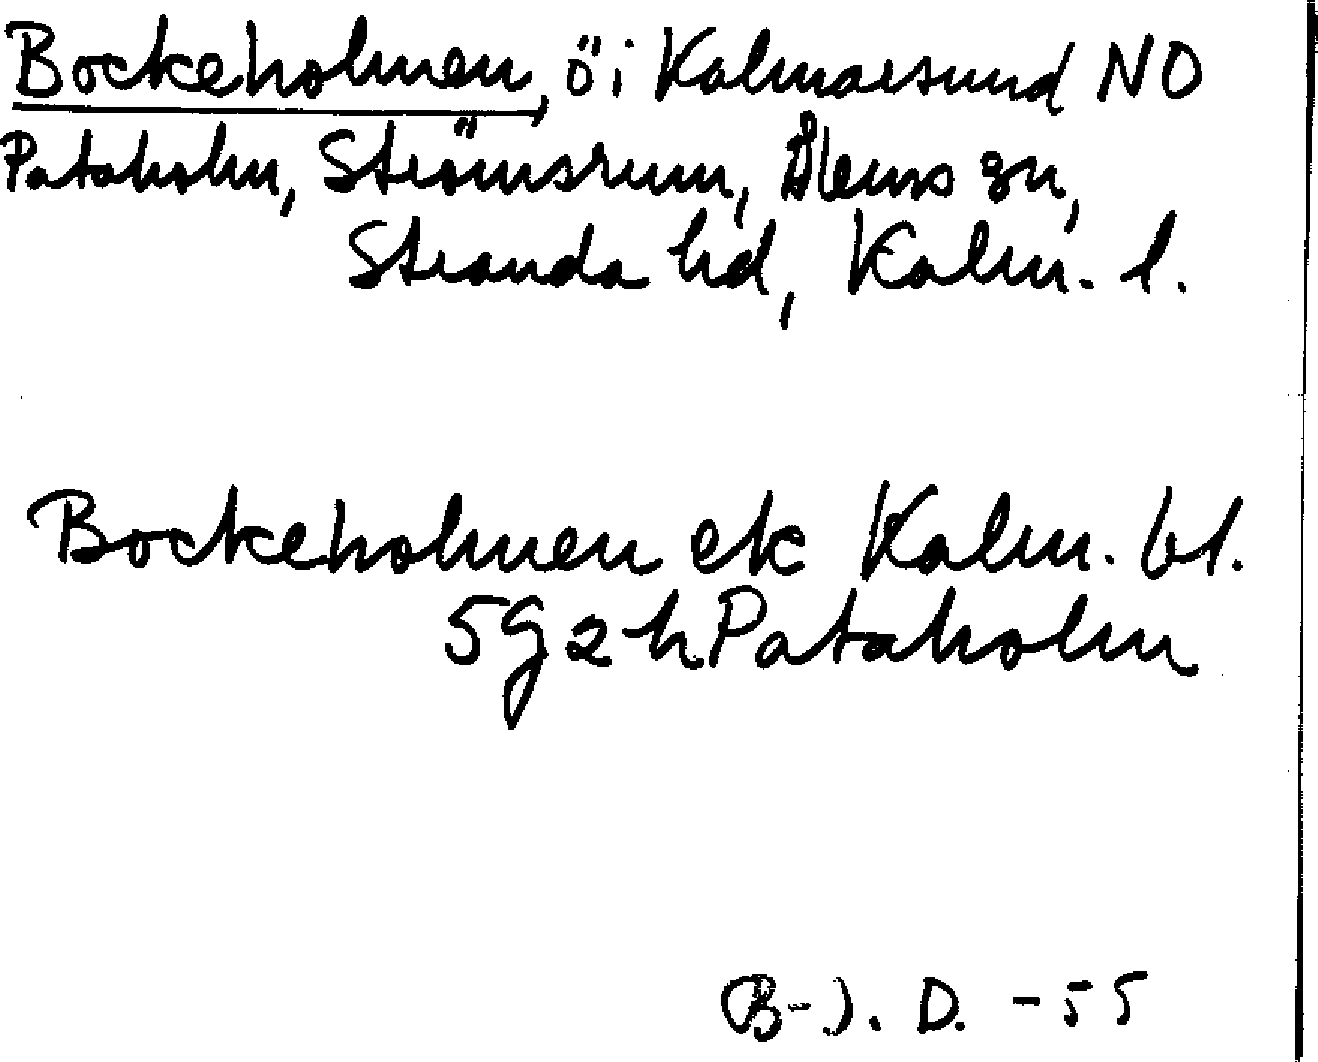 Bockeholmen, ö i Kalmarsund NO
Pataholm, Strömsrum, Ålems sn,
Stranda hd, Kalm. l.
Bockeholmen ek Kalm. bl.
5g2h Pataholm
B-J. D. -55